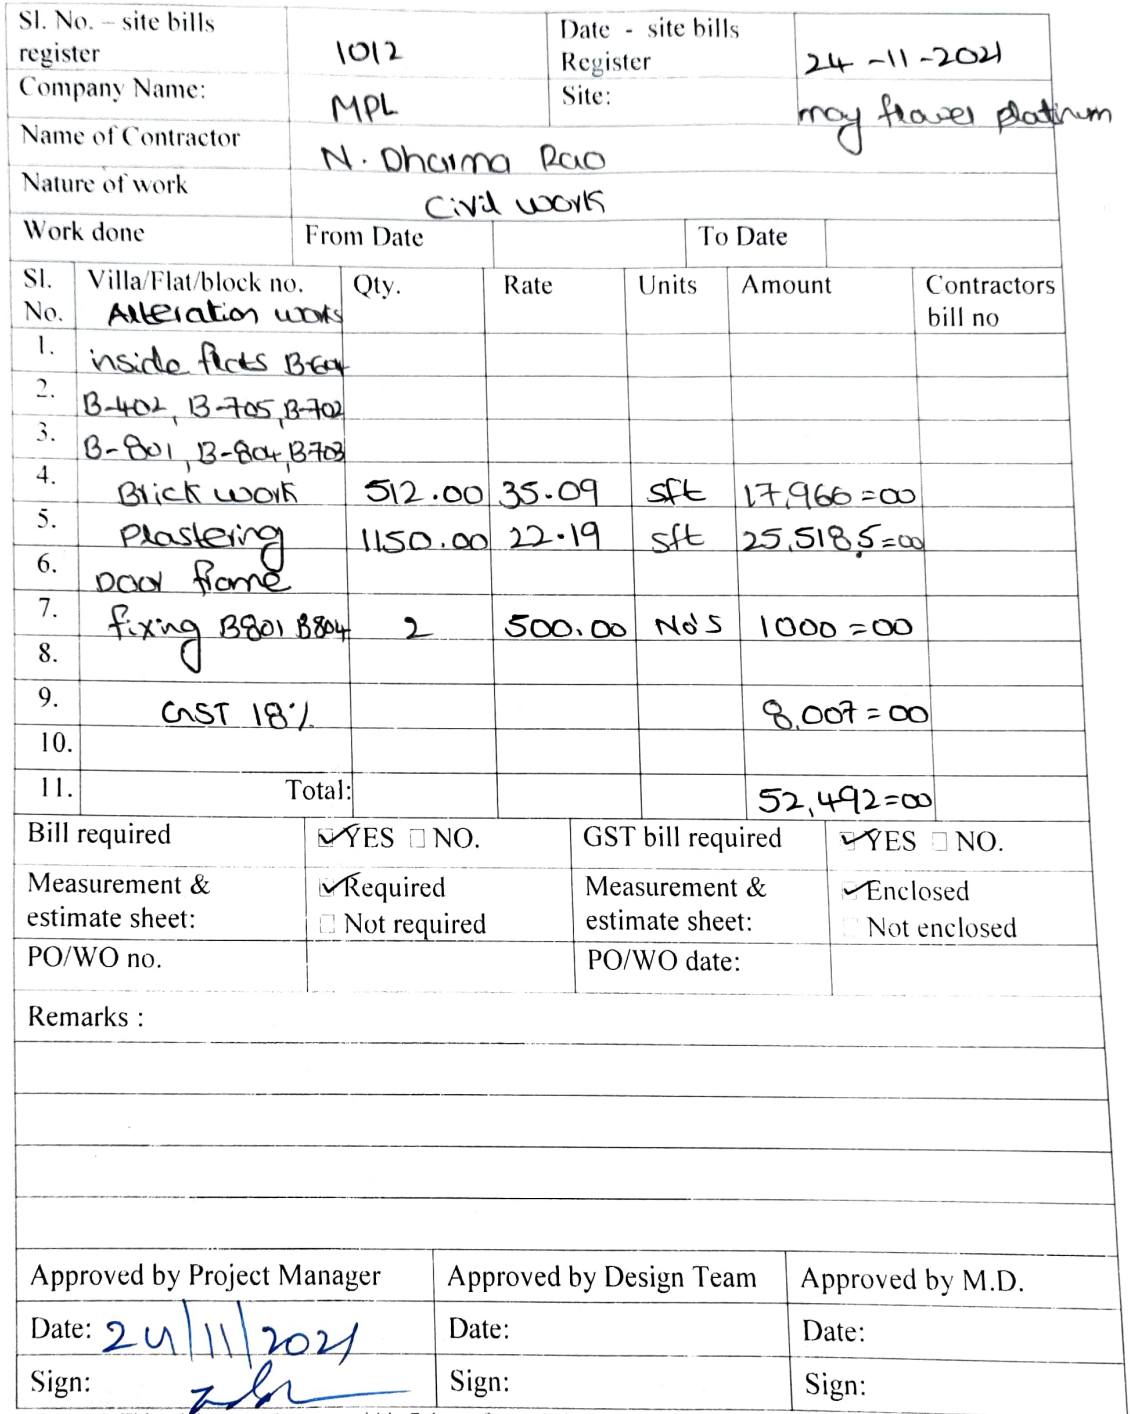 Sl. No. – site bills register 1012 Date - site bills Register 24-11-2021
Company Name: MPL Site: may flower platinum
Name of Contractor N. Dharma Rao
Nature of work Civil work
Work done From Date To Date
Sl. No. Villa/Flat/block no. Qty. Rate Units Amount Contractors bill no
Alteration works
1. inside flats B-604
2. B-402, B-705, B-702
3. B-801, B-804, B703
4. Brick work 512.00 35.09 sft 17,966=00
5. Plastering 1150.00 22.19 sft 25,518.5=00
6. Door frame
7. fixing B801 B804 2 500.00 No's 1000=00
8.
9. GST 18% 8,007=00
10.
11. Total: 52,492=00
Bill required YES NO. GST bill required YES NO.
Measurement & estimate sheet: Required Not required Measurement & estimate sheet: Enclosed Not enclosed
PO/WO no. PO/WO date:
Remarks :
Approved by Project Manager Approved by Design Team Approved by M.D.
Date: 24/11/2021 Date: Date:
Sign: Sign: Sign: